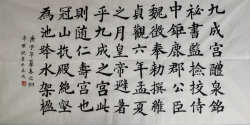 九成宮醴泉銘
祕書監撿挍侍
中鉅鹿郡公臣
魏徵奉勅撰維
貞觀六年孟夏
之月皇帝避暑
乎九成之宮此
則隨仁壽宮也
冠山抗殿絕壑
為池跨水架楹
庚子年暮春之初